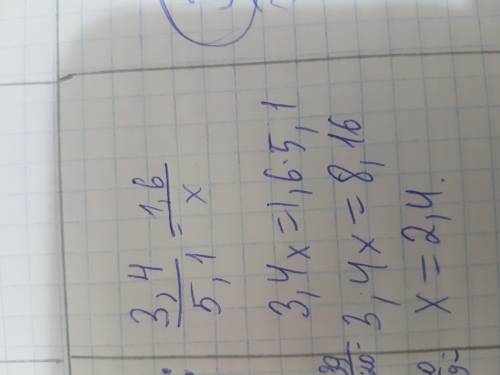 3,4/5,1 = 1,6/x
3,4x=1,6·5,1
3,4x=8,16
x=2,4.